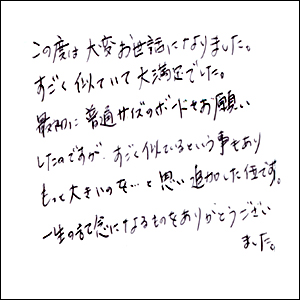 この度は大変お世話になりました。
すごく似ていて大満足でした。
最初に普通サイズのボードをお願い
したのですが、すごく似ているという事もあり
もっと大きいのを…と思い追加した位です。
一生の記念になるものをありがとうござい
ました。